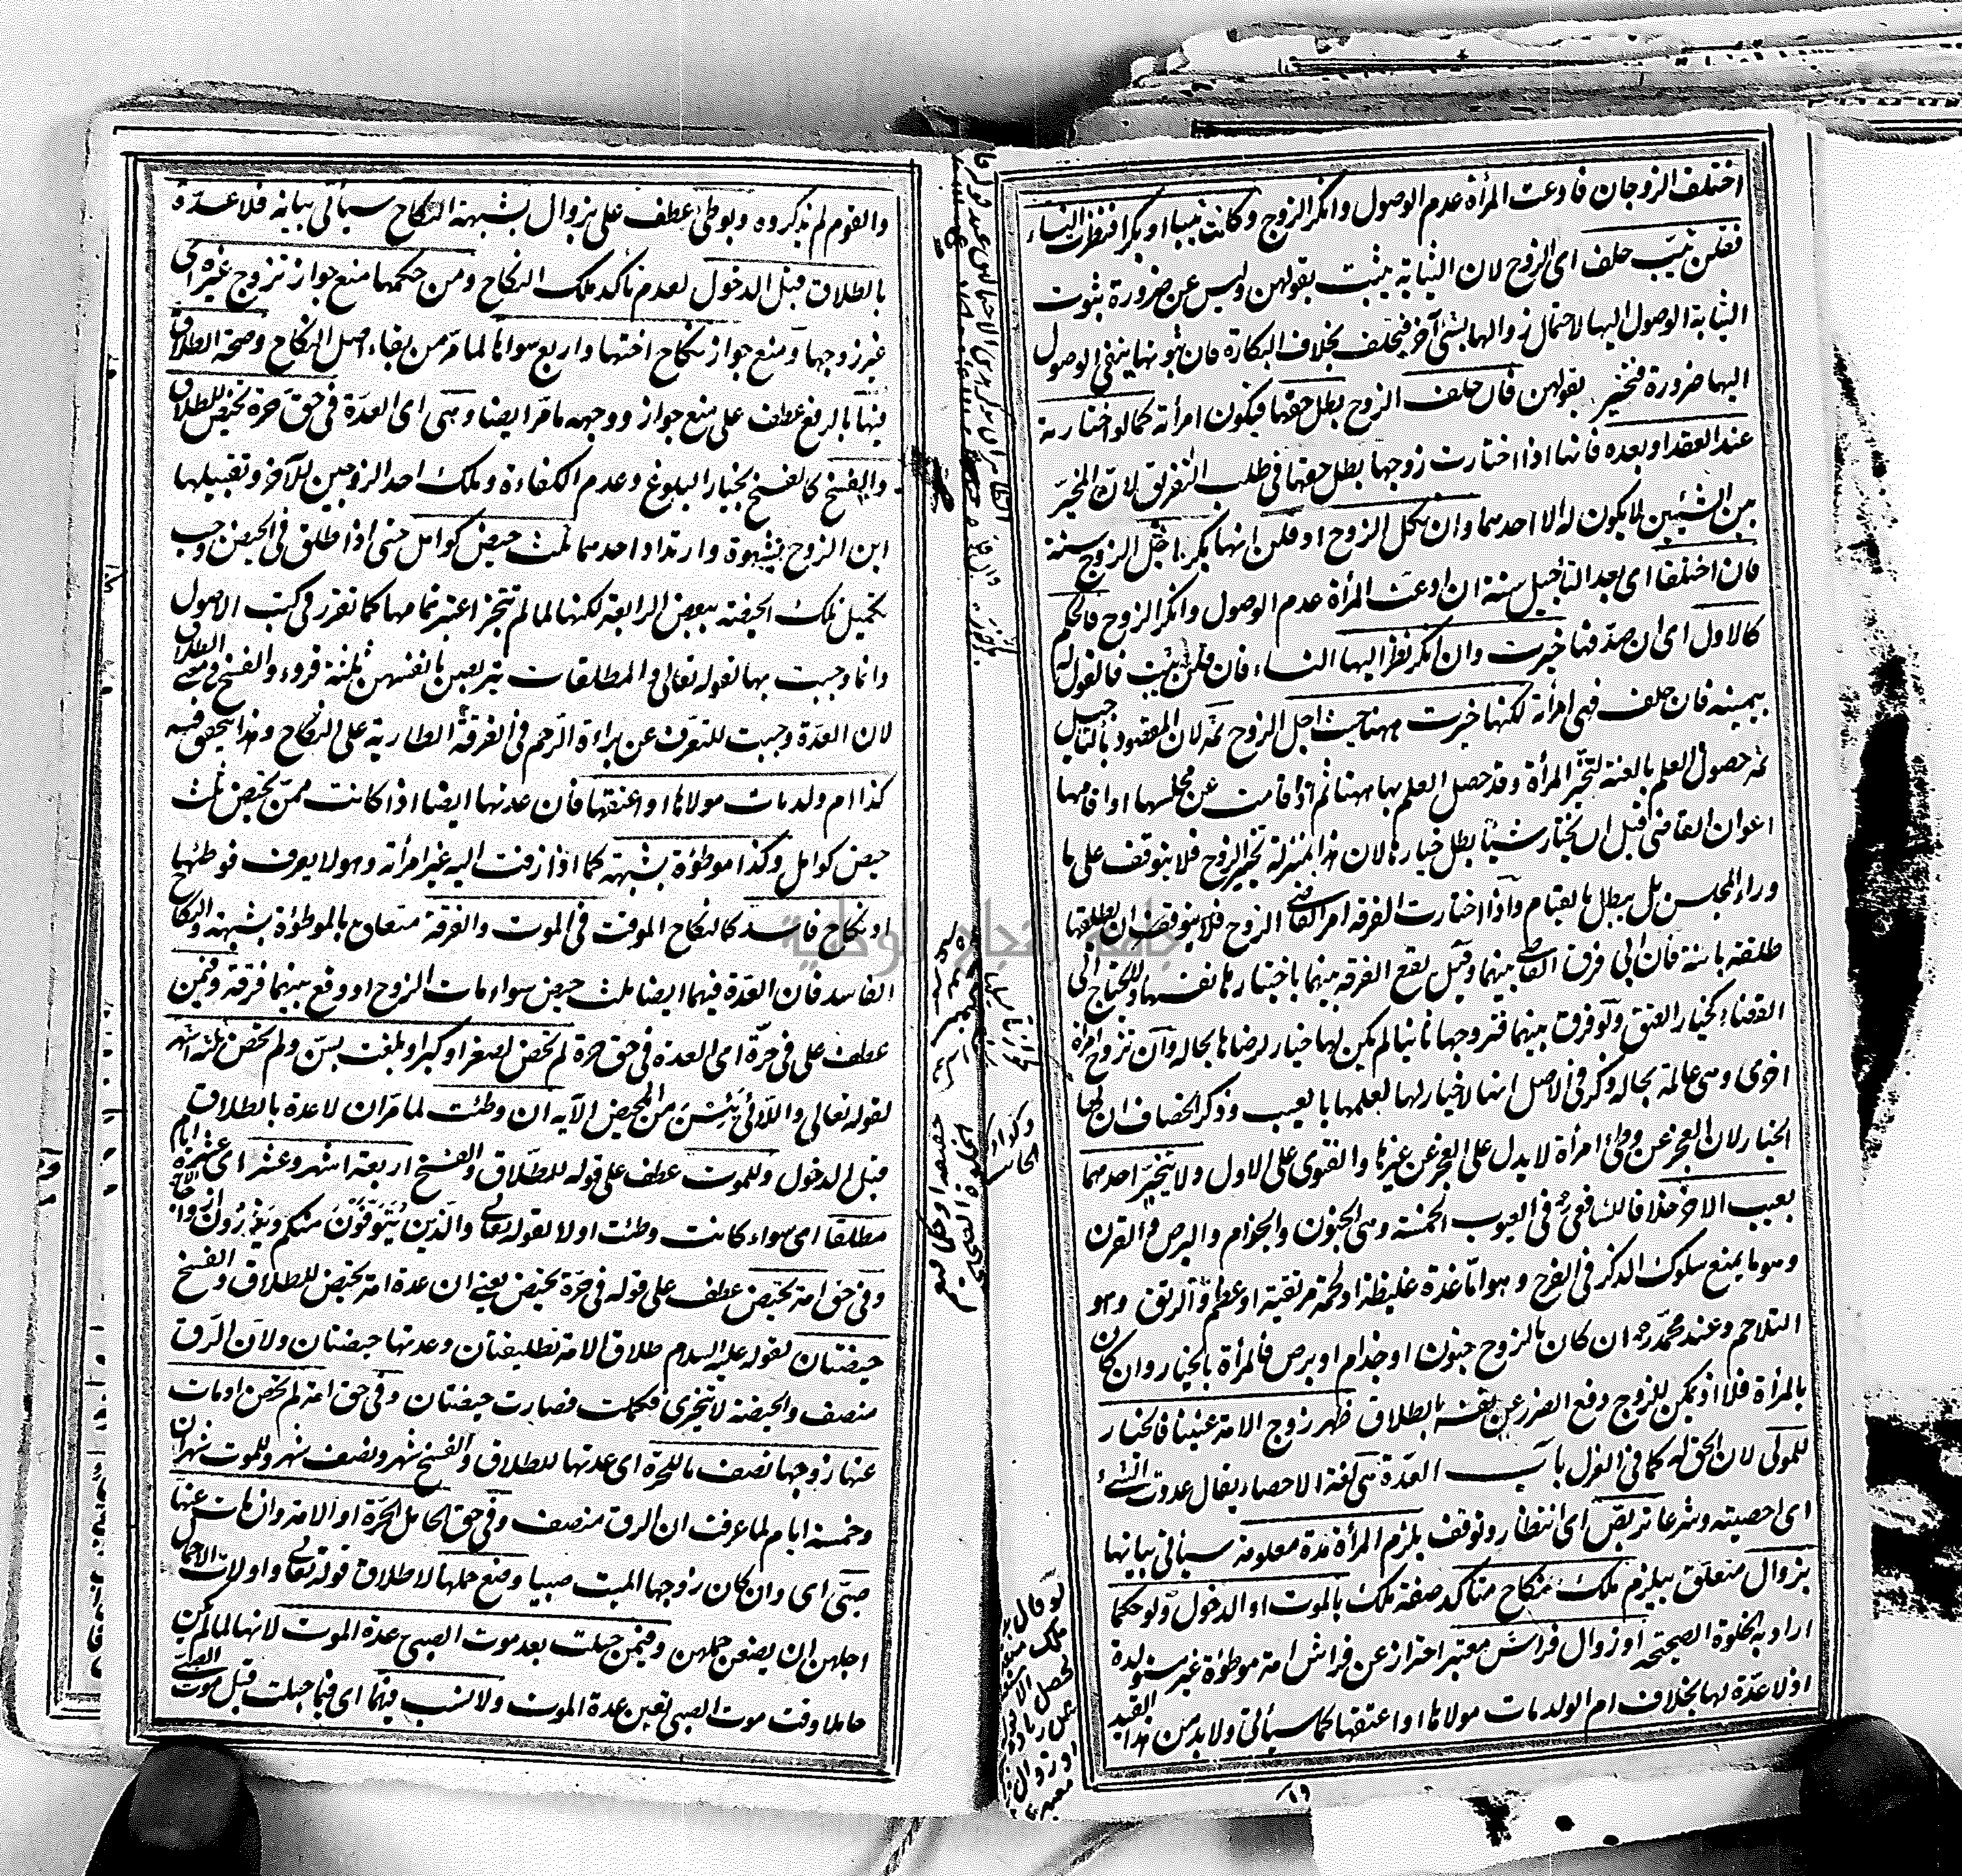 اختلف الزوجان فادعت المرأة عدم الوصول وانكر الزوج وكانت ثيبا او بكرا فنظرت النساء
فقلن ثيب حلف اى الزوج لان الثيابة يثبت بقولهن وليس عن ضرورة ثبوت
الثيابة الوصول اليها لاحتمال زوالها بشئ آخر فيحلف بخلاف البكارة فان ثبوتها ينفى الوصول
اليها ضرورة فتخير بقولهن فان حلف الزوج بطل حقها فيكون امرأته كما لو اختارته
عند العقد او بعده فانها اذا اختارت زوجها بطل حقها فى طلب التفريق لان المخير
بين الشيئين لا يكون له الا احدهما وان نكل الزوج او قلن انها بكر اجل الزوج سنة
فان اختلفا اى بعد التأجيل سنة ان ادعت المرأة عدم الوصول وانكر الزوج فالحكم
كالاول اى ان صدقها خيرت وان انكر نظر اليها النساء فان قلن ثيب فالقول له
بيمينه فان حلف فهى امرأته لكنها خيرت ههنا حيث اجل الزوج ثمه لان المقصود بالتأجيل
ثمه حصول العلم بالعنة لتخير المرأة وقد حصل العلم بها ههنا ثم اذا قامت عن مجلسها او اقامها
اعوان القاضى قبل ان تختار شيئا بطل خيارها لان هذا بمنزلة تخيير الزوج فلا يتوقف على ما
وراء المجلس بل يبطل بالقيام واذا اختارت الفرقة امر القاضى الزوج فلا يتوقف ان يطلقها
طلقة بائنة فان ابى فرق القاضى بينهما وقيل يقع الفرقة بينهما باختيارها نفسها ولا يحتاج الى
القضاء كخيار العتق ولو فرق بينهما فتزوجها ثانيا لم يكن لها خيار لرضاها بحاله وان تزوج امرأة
اخرى وهى عالمة بحاله ذكر فى الاصل انها لا خيار لها لعلمها بالعيب وذكر الخصاف ان لها
الخيار لان العجز عن وطئ امرأة لا يدل على العجز عن غيرها والفتوى على الاول ولا يتخير احدهما
بعيب الاخر خلافا للشافعى رح فى العيوب الخمسة وهى الجنون والجذام والبرص والقرن
وهو ما يمنع سلوك الذكر فى الفرج وهو اما غدة غليظة او لحمة مرتفعة او عظم والرتق وهو
التلاحم وعند محمد رح ان كان بالزوج جنون او جذام او برص فالمرأة بالخيار وان كان
بالمرأة فلا اذ يمكن للزوج دفع الضرر عن نفسه بالطلاق ظهر زوج الامة عنينا فالخيار
للمولى لان الحق له كما فى العزل باب العدة هى لغة الاحصاء يقال عددت الشئ
اى احصيته وشرعا تربص اى انتظار وتوقف يلزم المرأة مدة معلومة سيأتى بيانها
بزوال متعلق بيلزم ملك نكاح متأكد صفة ملك بالموت او الدخول ولو حكما
اراد به الخلوة الصحيحة او زوال فراش معتبر احتراز عن فراش امة موطوءة غير مستولدة
اذ لا عدة لها بخلاف ام الولد مات مولاها او اعتقها كما سيأتى ولا بد من هذا القيد
والقوم لم يذكروه وبوطئ عطف على بزوال بشبهة النكاح سيأتى بيانه فلا عدة
بالطلاق قبل الدخول لعدم تأكد ملك النكاح ومن حكمها منع جواز تزوج غيره اى
غير زوجها ومنع جواز نكاح اختها واربع سواها لما مر من بقاء اصل النكاح وصحة الطلاق
فيها بالرفع عطف على منع جواز ووجهه ما مر ايضا وهى اى العدة فى حق حرة تحيض للطلاق
والفسخ كالفسخ بخيار البلوغ وعدم الكفاءة وملك احد الزوجين للآخر وتقبيلها
ابن الزوج بشهوة وارتداد احدهما ثلث حيض كوامل حتى اذا طلق فى الحيض وجب
تكميل تلك الحيضة ببعض الرابعة لكنها لما لم تتجز اعتبر تمامها كما تقرر فى كتب الاصول
وانما وجبت بها لقوله تعالى والمطلقات يتربصن بانفسهن ثلثة قروء والفسخ فى معنى الطلاق
لان العدة وجبت للتعرف عن براءة الرحم فى الفرقة الطارية على النكاح وهذا يتحقق فيه
كذا ام ولد مات مولاها او اعتقها فان عدتها ايضا اذا كانت ممن تحيض ثلث
حيض كوامل وكذا موطوءة بشبهة كما اذا زفت اليه غير امرأته وهو لا يعرف فوطئها
او نكاح فاسد كالنكاح الموقت فى الموت والفرقة متعلق بالموطوءة بشبهة والنكاح
الفاسد فان العدة فيهما ايضا ثلث حيض سواء مات الزوج او وقع بينهما فرقة وفيمن
عطف على فى حرة اى العدة فى حق حرة لم تحض لصغر او كبر او بلغت بسن ولم تحض ثلثة اشهر
لقوله تعالى واللائى يئسن من المحيض الآية ان وطئت لما مر ان لا عدة بالطلاق
قبل الدخول وللموت عطف على قوله للطلاق والفسخ اربعة اشهر وعشر اى عشرة ايام
مطلقا اى سواء كانت وطئت اولا لقوله تعالى والذين يتوفون منكم ويذرون ازواجا الآية
وفى حق امة تحيض عطف على قوله فى حرة تحيض يعنى ان عدة امة تحيض للطلاق والفسخ
حيضتان لقوله عليه السلام طلاق الامة تطليقتان وعدتها حيضتان ولان الرق
منصف والحيضة لا تتجزى فكملت فصارت حيضتان وفى حق امة لم تحض او مات
عنها زوجها نصف ما للحرة اى عدتها للطلاق والفسخ شهر ونصف شهر وللموت شهران
وخمسة ايام لما عرفت ان الرق منصف وفى حق الحامل الحرة او الامة وان مات عنها
صبى اى وان كان زوجها الميت صبيا وضع حملها لاطلاق قوله تعالى واولات الاحمال
اجلهن ان يضعن حملهن وفيمن حبلت بعد موت الصبى عدة الموت لانها لما لم تكن
حاملا وقت موت الصبى تعين عدة الموت ولا نسب فيهما اى فيما حبلت قبل موت الصبى